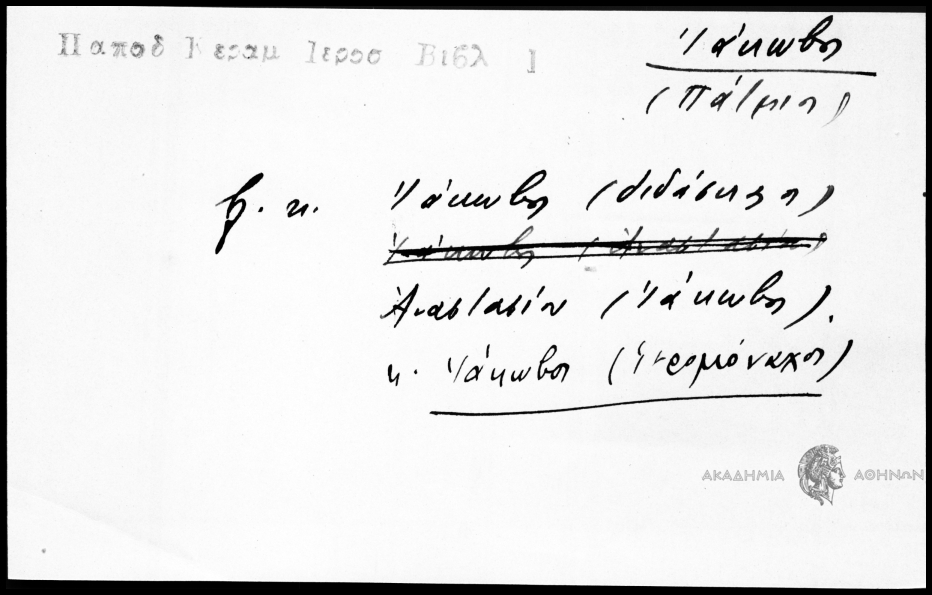 Παποδ Κεραμ Ιεροσ Βιβλ 1
Ἰάκωβος
(Πάτμιος)
β. κ. Ἰάκωβος (διδάσκαλος)
Ἰάκωβος (Ἀναστασίου)
Ἀναστασίου (Ἰάκωβος).
κ. Ἰάκωβος (ἱερομόναχος)
ΑΚΑΔΗΜΙΑ ΑΘΗΝΩΝ